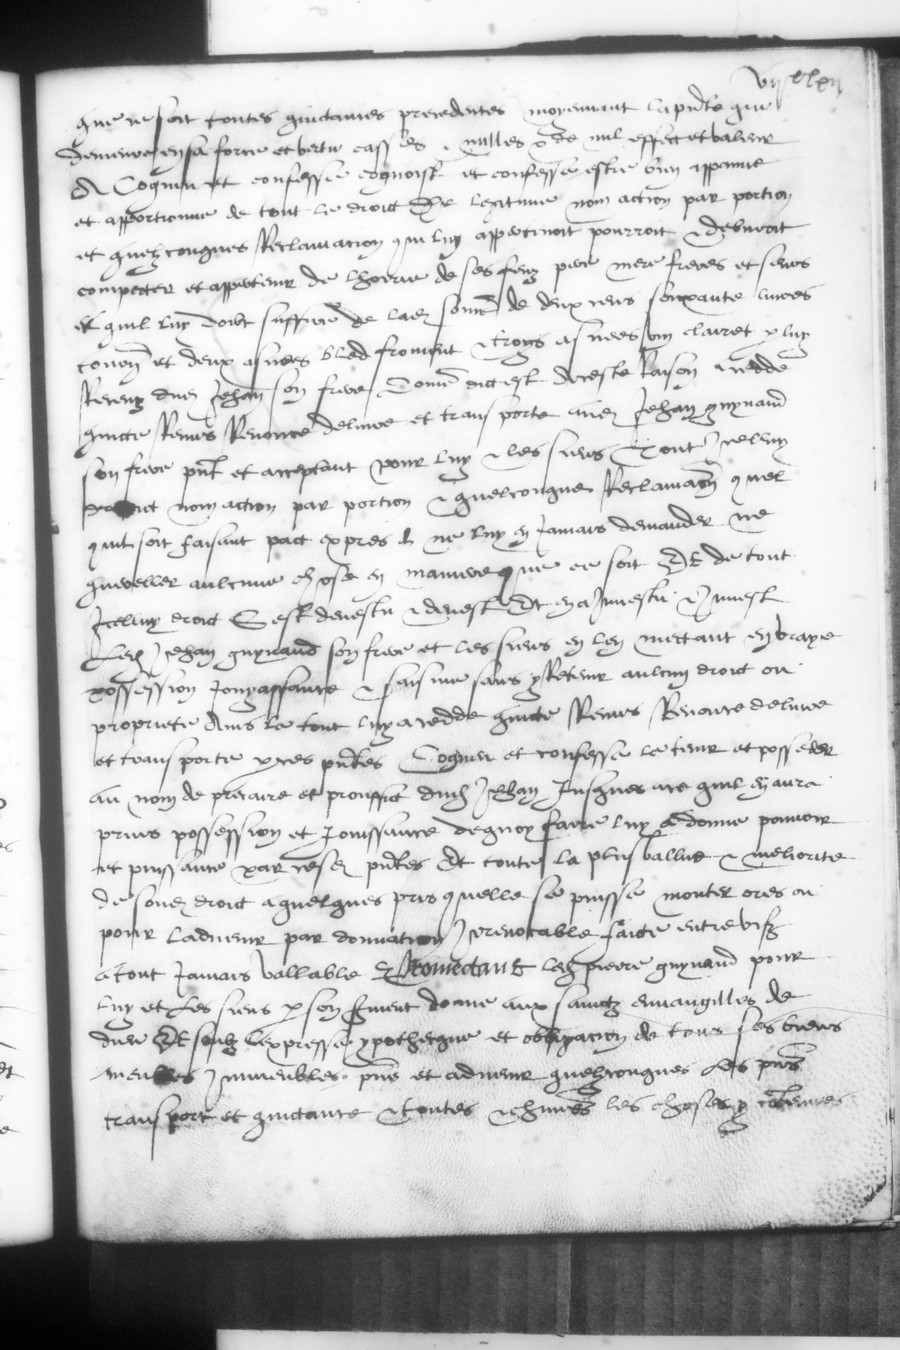 que ce soit toutes quictances precedentes moyennant la pnte que
demeure en sa force et vertu casses & nulles & de nul effect et valeur
A Cogneu et confesse cognoist et confesse estre bien appanné
et apportionné de tout le droict de legitime nom action part portion
et quelzconques Reclamation qui luy appertenoit pourroit & debvroit
competer et appertenir de l'hoerie de ses feuz pere mere freres et seurs
Et quil luy doibt suffire de lad somme de deux cens soixante livres
et deux asnees bled froment & troys asnees vin clairet p luy
Receuz dud Jehan son frere Comme dict est A ceste Raison a cedde
quicte Remis Renonce delivre et transporte aud Jehan guynand
son frere pnt et acceptant pour luy & les siens Tout Icelluy
droict nom action part portion & quelconque Reclamaon quel
quil soit faisant pact expres de ne luy en Jamais demander ne
quereller aulcune chose en maniere que ce soit Et de tout
Icelluy droict Sest devestu & devest Et en a Investu & Invest
Led Jehan guynand son frere et les siens en len mectant en vraye
possession Jouyssance & saisine sans y Retenir aulcun droict ou
propriete Ains le tout luy a cedde quicte Remis Renonce delivre
et transporte p ces pntes Cogneu et confesse le tenir et posseder
au nom de precaire et prouffict dud Jehan Jusques a ce quil en aura
prins possession et Jouissance de quoy faire luy a donne pouvoir
et puissance par cesd pntes Et toute la plus vallue & meliorite
de soned droict a quelques pris quelle se puisse monter ores ou
pour ladvenir par donnation Irrevocable faicte entre vifz
a tout Jamais vallable Promectant led pierre guynand pour
luy et Les siens p son serment donne aux sainctz euvangilles de
dieu Et soubz l'expresse ypotheque et obligation de tous ses biens
meubles Immeubles pns et advenir quelzconques Les pns
transport et quictance & toutes & chunes les choses y contenues